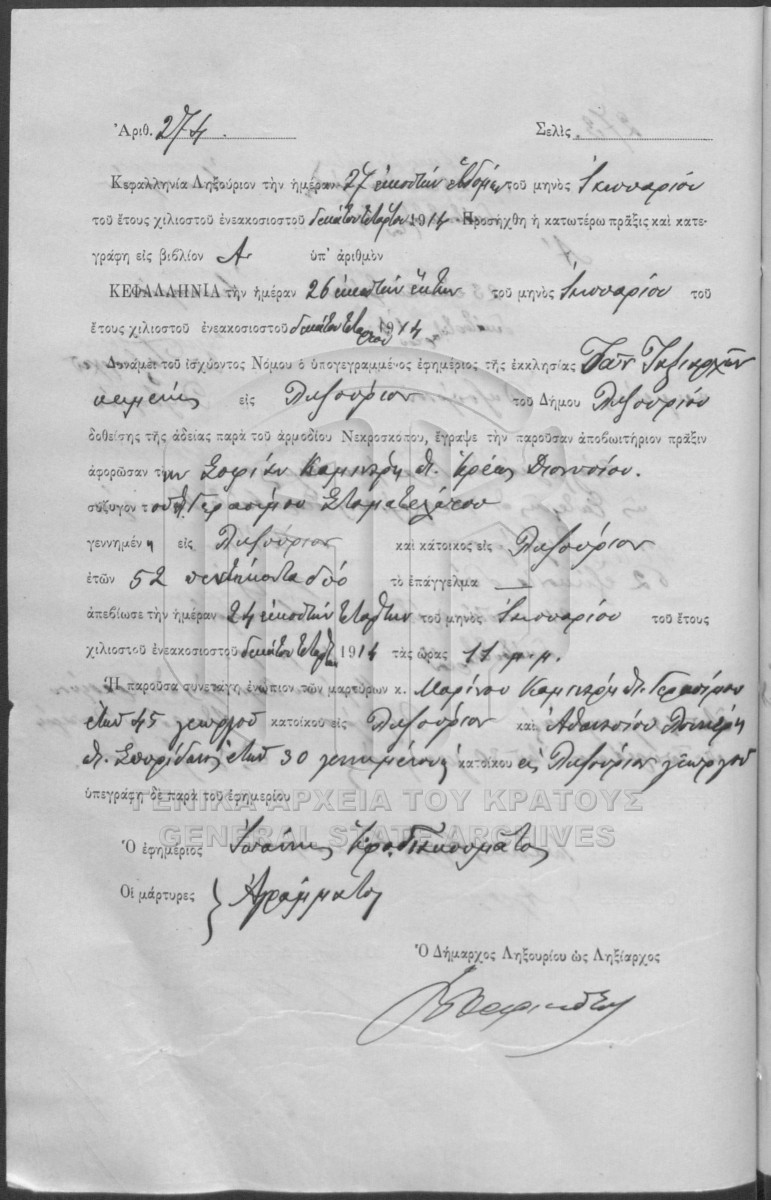 Ἀριθ. 274. Σελὶς
Κεφαλληνία Ληξούριον τὴν ἡμέραν 27 εἰκοστὴν ἑβδόμην τοῦ μηνὸς Ἰανουαρίου
τοῦ ἔτους χιλιοστοῦ ἐνεακοσιοστοῦ δεκάτου τετάρτου 1914. Προσήχθη ἡ κατωτέρω πρᾶξις καὶ κατε-
γράφη εἰς βιβλίον Α ὑπ' ἀριθμὸν
ΚΕΦΑΛΛΗΝΙΑ τὴν ἡμέραν 26 εἰκοστὴν ἕκτην τοῦ μηνὸς Ἰανουαρίου τοῦ
ἔτους χιλιοστοῦ ἐνεακοσιοστοῦ δεκάτου τετάρτου 1914
Δυνάμει τοῦ ἰσχύοντος Νόμου ὁ ὑπογεγραμμένος ἐφημέριος τῆς ἐκκλησίας Τῶν Ταξιαρχῶν
κειμένης εἰς Ληξούριον τοῦ Δήμου Ληξουρίου
δοθείσης τῆς ἀδείας παρὰ τοῦ ἁρμοδίου Νεκροσκόπου, ἔγραψε τὴν παροῦσαν ἀποβιωτήριον πρᾶξιν
ἀφορῶσαν τὴν Σοφίαν Διονυσίου.
σύζυγον τοῦ Γερασίμου Σταματελάτου
γεννημένη εἰς Ληξούριον καὶ κάτοικος εἰς Ληξούριον
ἐτῶν 52 πεντήκοντα δύο τὸ ἐπάγγελμα —
ἀπεβίωσε τὴν ἡμέραν 24 εἰκοστὴν τετάρτην τοῦ μηνὸς Ἰανουαρίου τοῦ ἔτους
χιλιοστοῦ ἐνεακοσιοστοῦ δεκάτου τετάρτου 1914 τὰς ὥρας 11 π.μ.
Ἡ παροῦσα συνετάγη ἐνώπιον τῶν μαρτύρων κ. Μαρίνου Γερασίμου
ἐτῶν 45 γεωργοῦ κατοίκου εἰς Ληξούριον καὶ Ἀθανασίου
Σπυρίδωνος ἐτῶν 30 γεννημένους κατοίκου εἰς Ληξούριον γεωργοῦ
ὑπεγράφη δὲ παρὰ τοῦ ἐφημερίου
ΓΕΝΙΚΑ ΑΡΧΕΙΑ ΤΟΥ ΚΡΑΤΟΥΣ
GENERAL STATE ARCHIVES
Ὁ ἐφημέριος Ἰωάννης
Οἱ μάρτυρες } Ἀγράμματοι
Ὁ Δήμαρχος Ληξουρίου ὡς Ληξίαρχος